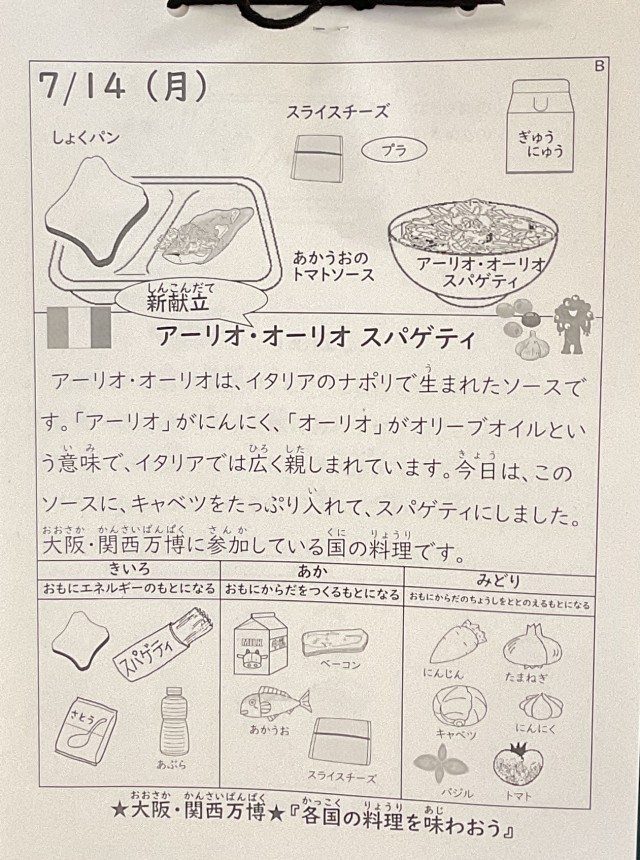 B
7/14（月）
しょくパン
スライスチーズ
プラ
ぎゅう
にゅう
あかうおの
トマトソース
アーリオ・オーリオ
スパゲティ
しんこんだて
新献立
アーリオ・オーリオ スパゲティ
アーリオ・オーリオは、イタリアのナポリで生まれたソースで
す。「アーリオ」がにんにく、「オーリオ」がオリーブオイルとい
う意味で、イタリアでは広く親しまれています。今日は、この
ソースに、キャベツをたっぷり入れて、スパゲティにしました。
大阪・関西万博に参加している国の料理です。
きいろ
おもにエネルギーのもとになる
スパゲティ
さとう
あぶら
あか
おもにからだをつくるもとになる
MILK
ベーコン
あかうお
スライスチーズ
みどり
おもにからだのちょうしをととのえるもとになる
にんじん
たまねぎ
キャベツ
にんにく
バジル
トマト
★大阪・関西万博★『各国の料理を味わおう』